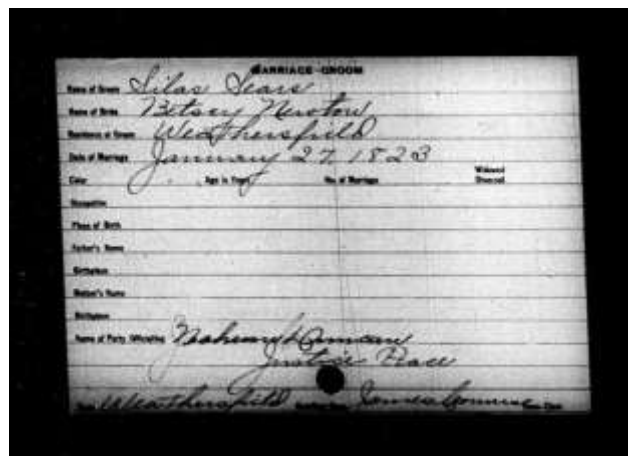 MARRIAGE-GROOM
Name of Groom Silas Sears
Name of Bride Betsey Newton
Residence of Groom Weathersfield
Date of Marriage January 27, 1823
Color Age in Years No. of Marriage Widowed Divorced
Occupation
Place of Birth
Father's Name
Birthplace
Mother's Name
Birthplace
Name of Party Officiating
Justice Peace
Weathersfield James